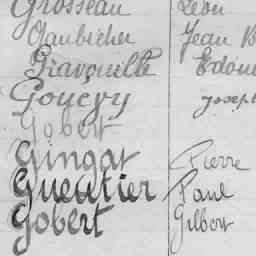 Grosseau Léon
Gaubicher Jean B
Graveuille Edoue
Goucry Joseph
Gobert
Gingat Pierre
Gueutier Paul
Gobert Gilbert